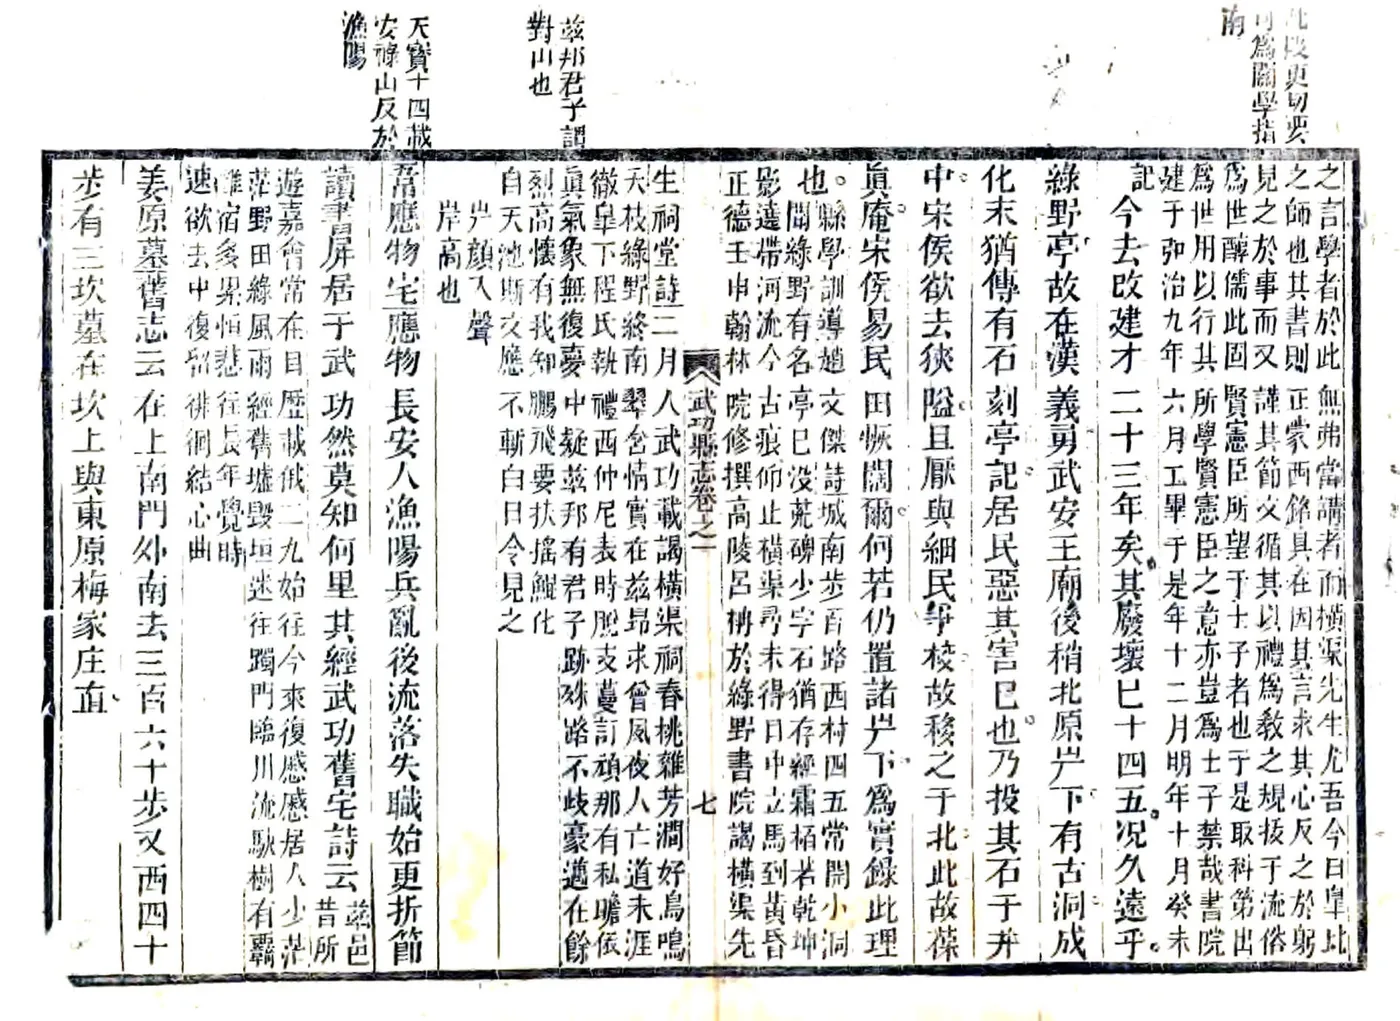 此段更切要
可為關學指
南
茲邦君子謂
對山也
天寶十四載
安祿山反於
漁陽
之言學者於此無弗當講者而橫渠先生尤吾今日皐比
之師也其書則正蒙西銘具在因其言求其心反之於躬
見之於事而又謹其節文循其以禮為教之規拔于流俗
為世醇儒此固賢憲臣所望于士子者也于是取科第出
為世用以行其所學賢憲臣之意亦豈為士子禁哉書院
建于弘治九年六月工畢于是年十二月明年十月癸未
記
今去改建才二十三年矣其廢壞巳十四五。况久遠乎。
綠野亭故在漢義勇武安王廟後稍北原岸下有古洞成
化末猶傳有石刻亭記居民惡其害巳也。乃投其石于井
中。宋侯欲去狹隘且厭與細民爭校故移之于北此故葆
眞庵。宋侯易民田恢闊爾。何若仍置諸岸下為實錄此理
也。縣學訓導趙文傑詩城南步百路西村四五常開小洞
門綠野有名亭巳没荒碑少字石猶存經霜栢若乾坤
影遶帶河流今古痕仰止橫渠尋未得日中立馬到黃昏
正德壬申翰林院修撰高陵呂柟於綠野書院謁橫渠先
武功縣志卷之一 七
生祠堂詩二月人武功載謁橫渠祠春桃雜芳澗好鳥鳴
天枝綠野終南翠含情實在茲昂求曾夙夜人亡道未涯
徹皐下程氏執禮西仲尼表時脫支蔓訂頑那有私瞻依
眞氣象無復夢中疑茲邦有君子跡殊路不歧豪邁在餘
烈高懷有我知鵬飛要扶搖鯤化
自天池斯文應不斬白日令見之
岸顔入聲
岸高也
韋應物宅應物長安人漁陽兵亂後流落失職始更折節
讀書屏居于武功然莫知何里其經武功舊宅詩云茲邑昔所
遊嘉會常在目歷載俄二九始往今來復慼慼居人少茫
茫野田綠風雨經舊墟毀垣迷往躅門臨川流駛樹有羈
雌宿多累恒悲往長年覺時
速欲去中復留徘徊結心曲
姜原墓舊志云在上南門外南去三百六十步又西四十
步有三坎墓在坎上與東原梅家庄直